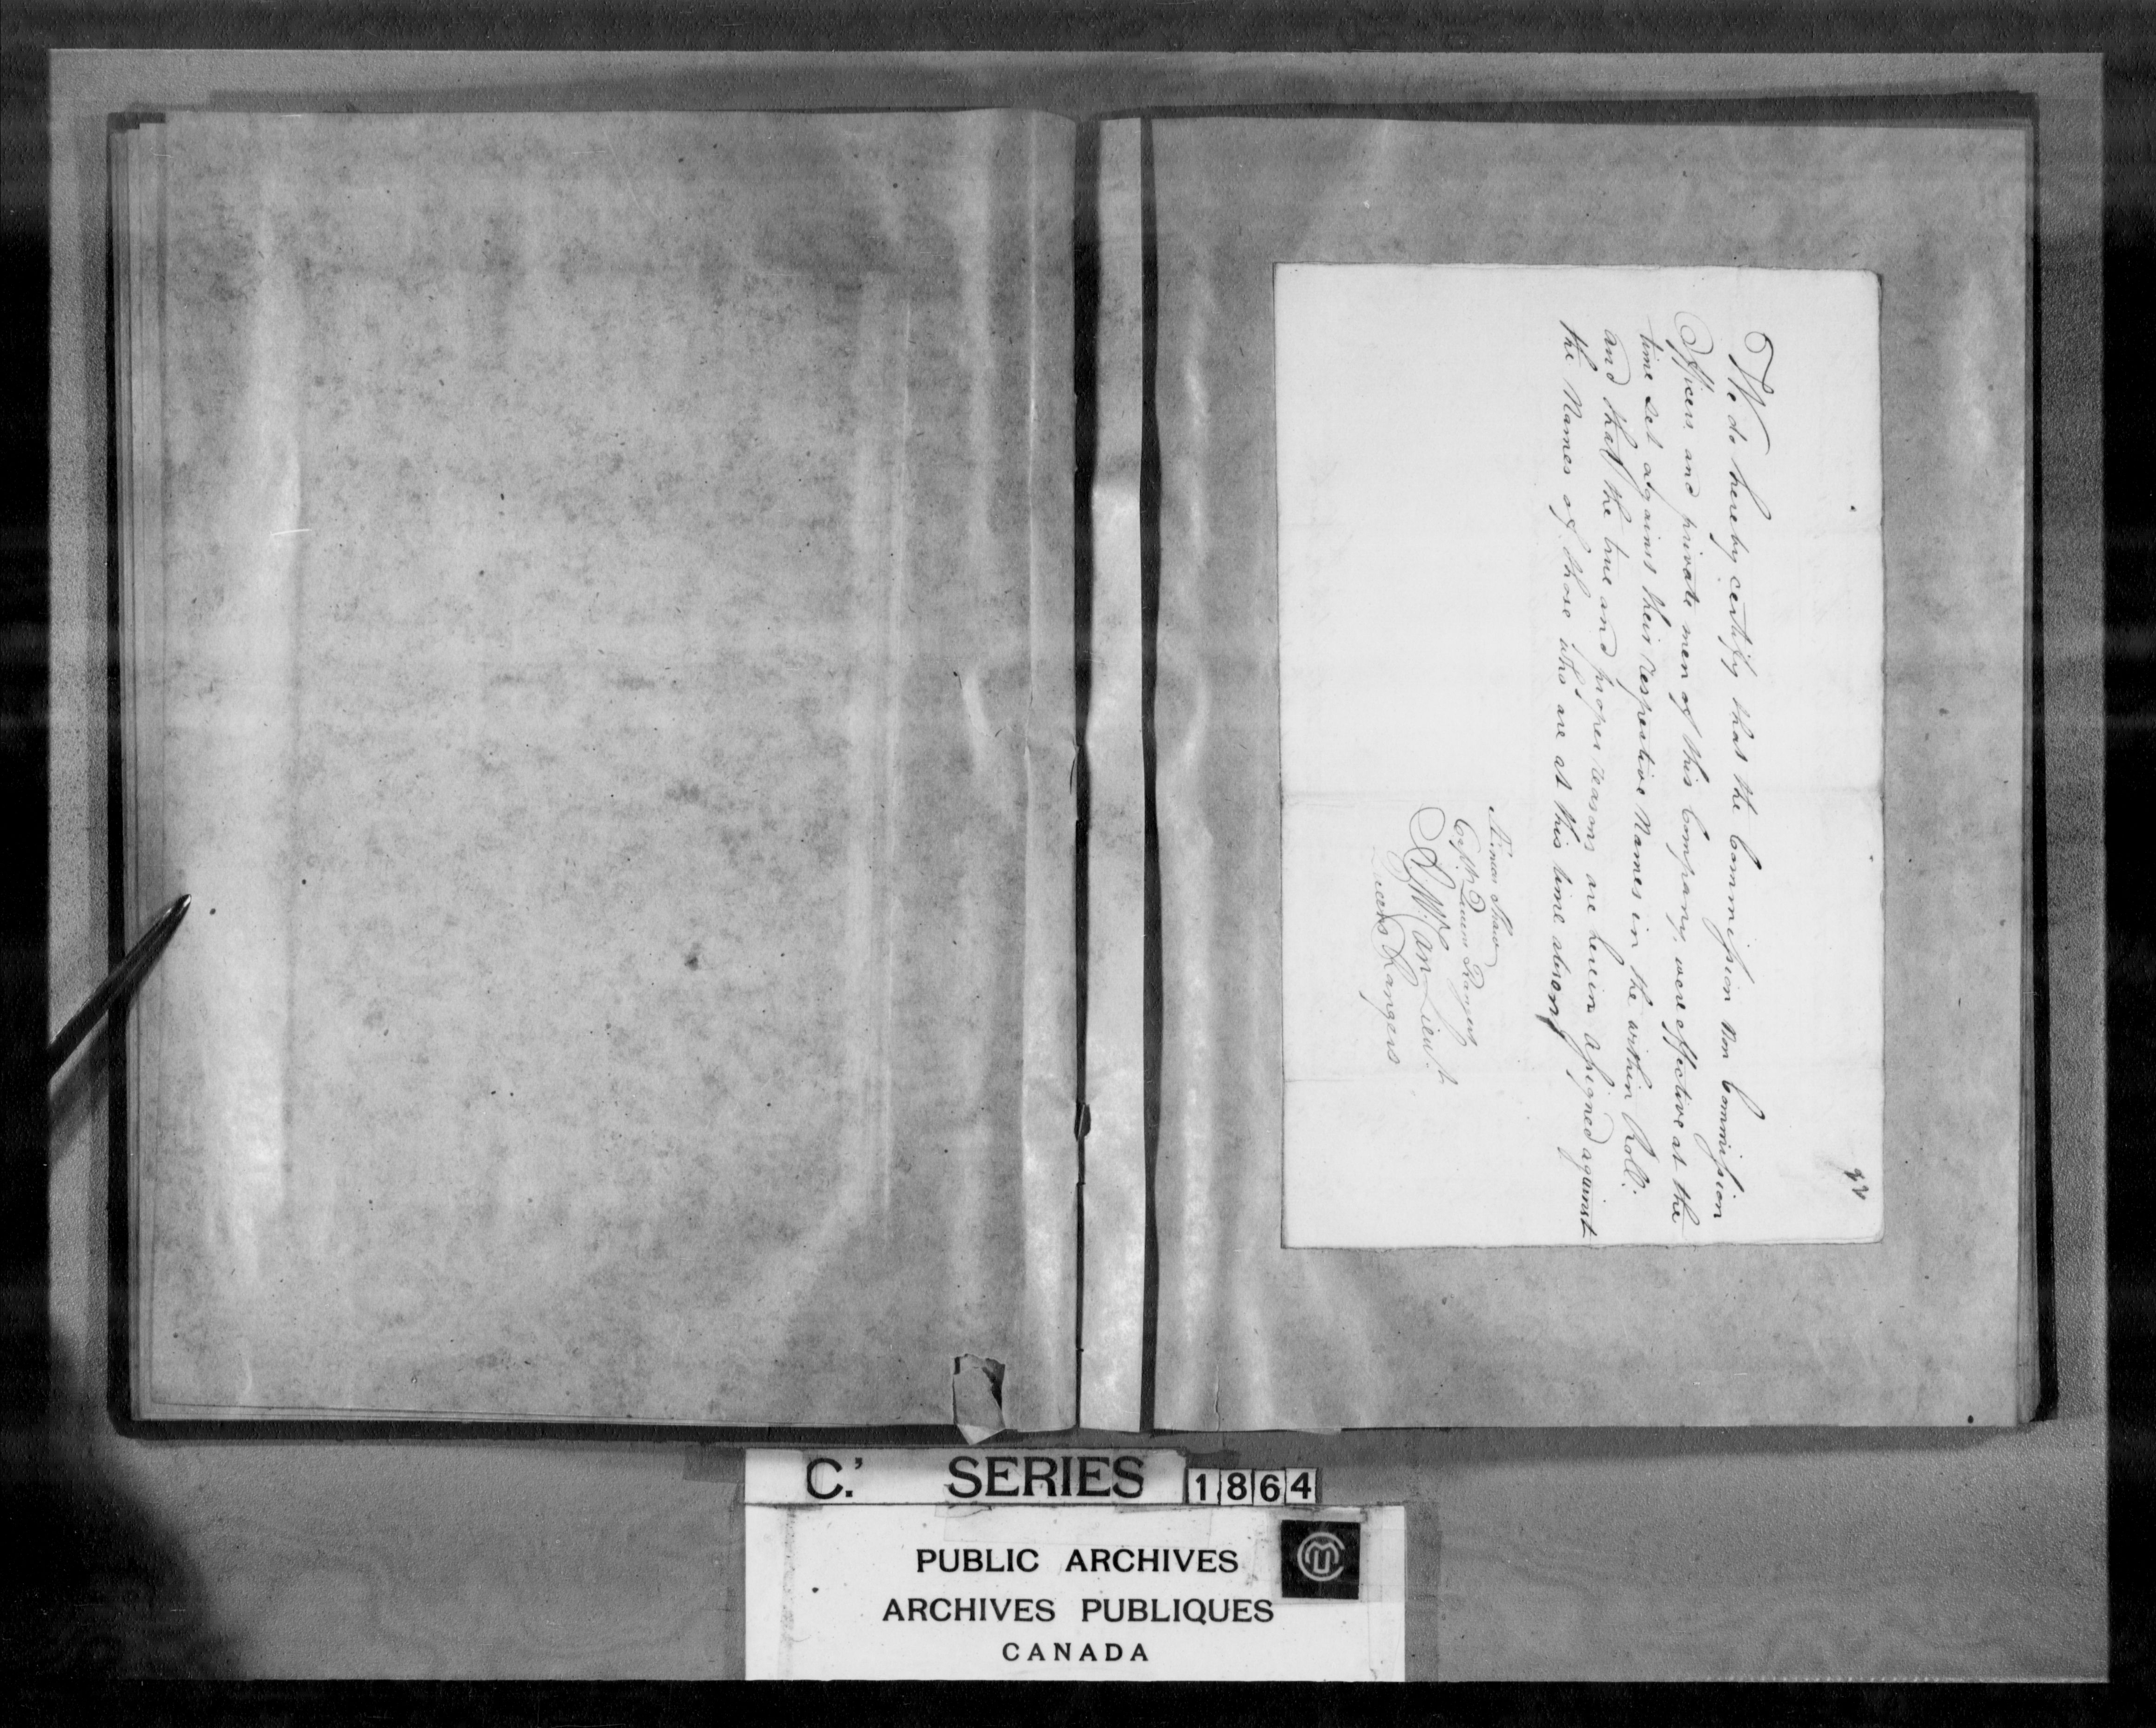 We do hereby certify that the Commission Non Commission
Officers and private men of this Company, were effective at the
time set against their Respective Names in the within Roll:
and that the true and proper reasons are herein assigned against
the Names of those who are at this time absent
Æneas Shaw
Capt. Queens Rangers
Lieut.
Queens Rangers
C. SERIES 1864
PUBLIC ARCHIVES
ARCHIVES PUBLIQUES
CANADA